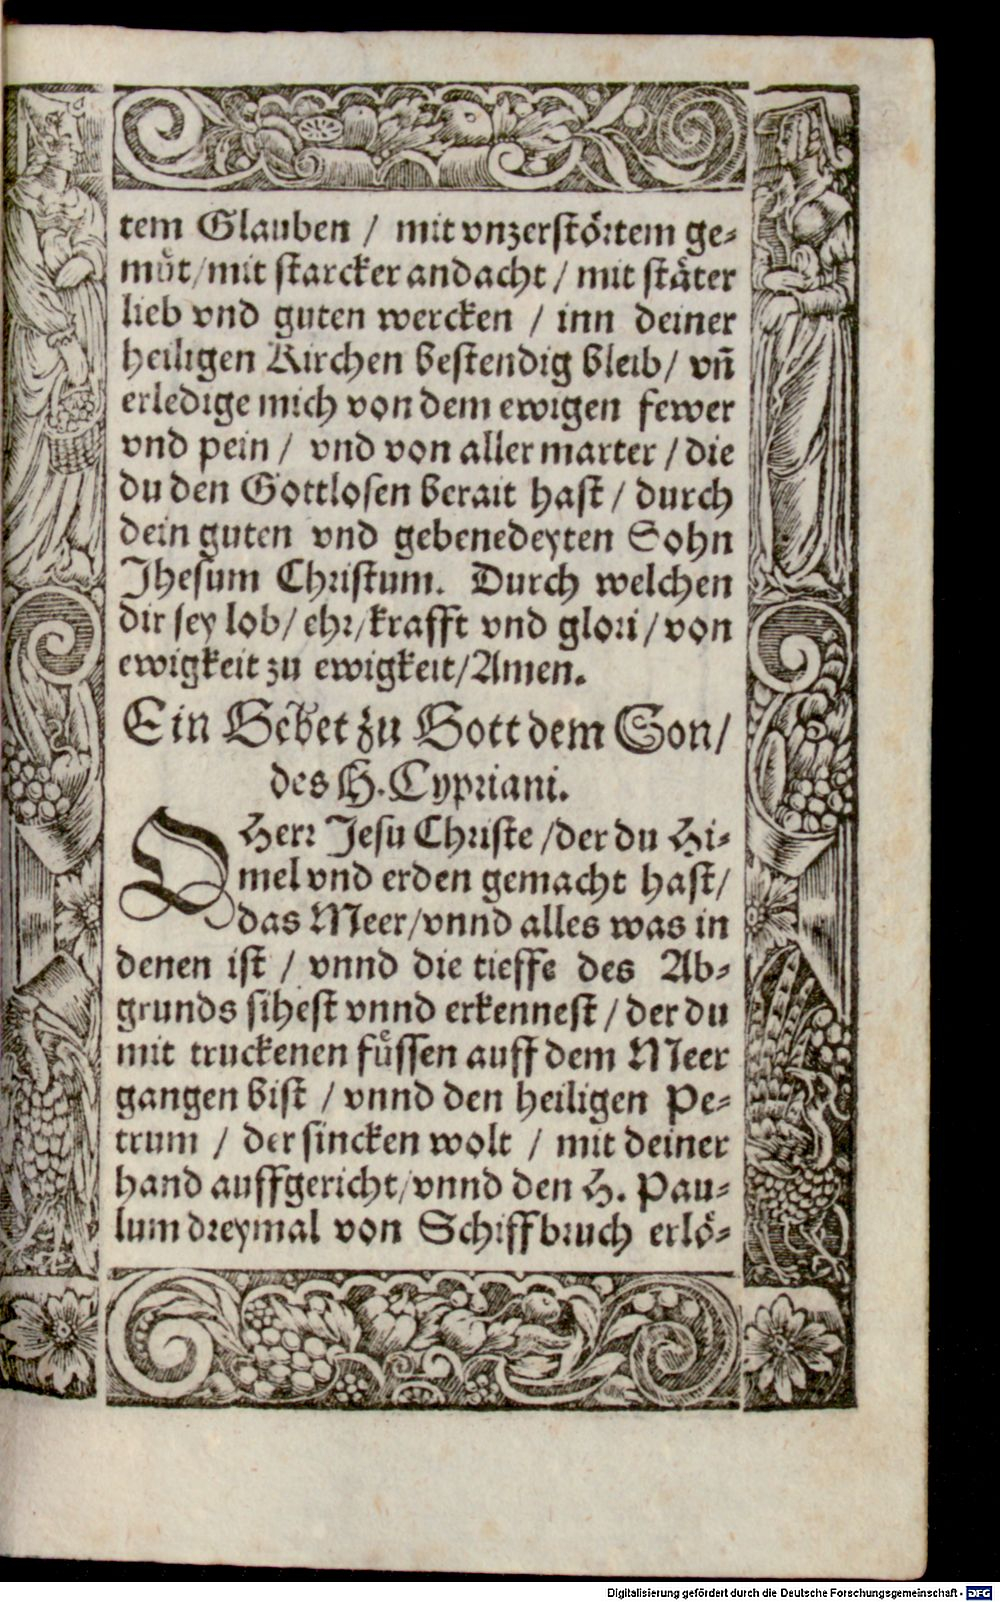 tem Glauben / mit vnzerstörtem ge⸗
müt/mit starcker andacht / mit stäter
lieb vnd guten wercken / inn deiner
heiligen Kirchen bestendig bleib/ vñ
erledige mich von dem ewigen fewer
vnd pein / vnd von aller marter / die
du den Gottlosen berait hast / durch
dein guten vnd gebenedeyten Sohn
Jhesum Christum. Durch welchen
dir sey lob/ ehr/krafft vnd glori/ von
ewigkeit zu ewigkeit/Amen.
Ein Gebet zu Gott dem Son/
des H. Cypriani.
O Herr Jesu Christe /der du Hi⸗
mel vnd erden gemacht hast/
das Meer/vnnd alles was in
denen ist / vnnd die tieffe des Ab⸗
grunds sihest vnnd erkennest / der du
mit truckenen füssen auff dem Meer
gangen bist / vnnd den heiligen Pe⸗
trum / der sincken wolt / mit deiner
hand auffgericht/vnnd den H. Pau⸗
lum dreymal von Schiffbruch erlö⸗
Digitalisierung gefördert durch die Deutsche Forschungsgemeinschaft - DFG